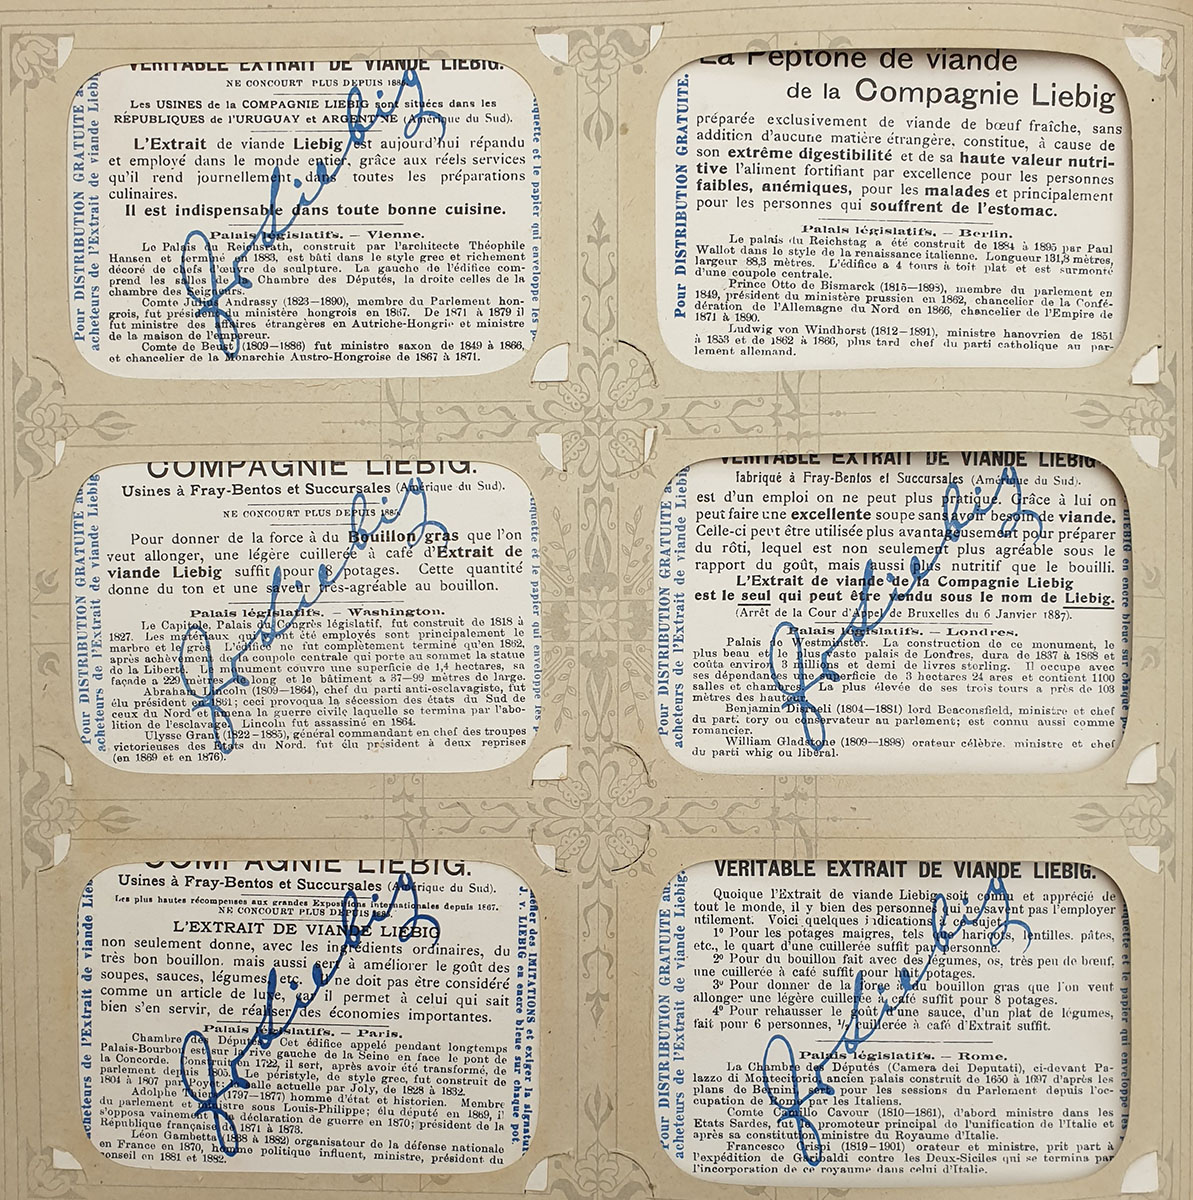 VERITABLE EXTRAIT DE VIANDE LIEBIG.
NE CONCOURT PLUS DEPUIS 1885.
Les USINES de la COMPAGNIE LIEBIG sont situées dans les
RÉPUBLIQUES de l'URUGUAY et ARGENTINE (Amérique du Sud).
L'Extrait de viande Liebig est aujourd'hui répandu
et employé dans le monde entier, grâce aux réels services
qu'il rend journellement dans toutes les préparations
culinaires.
Il est indispensable dans toute bonne cuisine.
Palais législatifs. — Vienne.
Le Palais du Reichsrath, construit par l'architecte Théophile
Hansen et terminé en 1883, est bâti dans le style grec et richement
décoré de chefs d'œuvre de sculpture. La gauche de l'édifice com-
prend les salles de la Chambre des Députés, la droite celles de la
chambre des Seigneurs.
Comte Julius Andrassy (1823—1890), membre du Parlement hon-
grois, fut président du ministère hongrois en 1867. De 1871 à 1879 il
fut ministre des affaires étrangères en Autriche-Hongrie et ministre
de la maison de l'empereur.
Comte de Beust (1809—1886) fut ministre saxon de 1849 à 1866,
et chancelier de la Monarchie Austro-Hongroise de 1867 à 1871.
Pour DISTRIBUTION GRATUITE a
acheteurs de l'Extrait de viande Liebig
iquette et le papier qui enveloppe les p
J v Liebig
La Peptone de viande
de la Compagnie Liebig
préparée exclusivement de viande de bœuf fraîche, sans
addition d'aucune matière étrangère, constitue, à cause de
son extrême digestibilité et de sa haute valeur nutri-
tive l'aliment fortifiant par excellence pour les personnes
faibles, anémiques, pour les malades et principalement
pour les personnes qui souffrent de l'estomac.
Palais législatifs. — Berlin.
Le palais du Reichstag a été construit de 1884 à 1895 par Paul
Wallot dans le style de la renaissance italienne. Longueur 131,8 mètres,
largeur 88,3 mètres. L'édifice a 4 tours à toit plat et est surmonté
d'une coupole centrale.
Prince Otto de Bismarck (1815—1898), membre du parlement en
1849, président du ministère prussien en 1862, chancelier de la Confé-
dération de l'Allemagne du Nord en 1866, chancelier de l'Empire de
1871 à 1890.
Ludwig von Windhorst (1812—1891), ministre hanovrien de 1851
à 1853 et de 1862 à 1866, plus tard chef du parti catholique au par-
lement allemand.
Pour DISTRIBUTION GRATUITE.
COMPAGNIE LIEBIG.
Usines à Fray-Bentos et Succursales (Amérique du Sud).
NE CONCOURT PLUS DEPUIS 1885.
Pour donner de la force à du Bouillon gras que l'on
veut allonger, une légère cuillerée à café d'Extrait de
viande Liebig suffit pour 8 potages. Cette quantité
donne du ton et une saveur très-agréable au bouillon.
Palais législatifs. — Washington.
Le Capitole, Palais du Congrès législatif, fut construit de 1818 à
1827. Les matériaux qui ont été employés sont principalement le
marbre et le grès. L'édifice ne fut complètement terminé qu'en 1862,
après achèvement de la coupole centrale qui porte au sommet la statue
de la Liberté. Le monument couvre une superficie de 1,4 hectares, sa
façade a 229 mètres de long et le bâtiment a 37—99 mètres de large.
Abraham Lincoln (1809—1864), chef du parti anti-esclavagiste, fut
élu président en 1861; ceci provoqua la sécession des états du Sud de
ceux du Nord et amena la guerre civile laquelle se termina par l'abo-
lition de l'esclavage. Lincoln fut assassiné en 1864.
Ulysse Grant (1822—1885), général commandant en chef des troupes
victorieuses des Etats du Nord. fut élu président à deux reprises
(en 1869 et en 1876).
Pour DISTRIBUTION GRATUITE au
acheteurs de l'Extrait de viande Liebig
iquette et le papier qui enveloppe les p
J v Liebig
VERITABLE EXTRAIT DE VIANDE LIEBIG
fabriqué à Fray-Bentos et Succursales (Amérique du Sud).
est d'un emploi on ne peut plus pratique. Grâce à lui on
peut faire une excellente soupe sans avoir besoin de viande.
Celle-ci peut être utilisée plus avantageusement pour préparer
du rôti, lequel est non seulement plus agréable sous le
rapport du goût, mais aussi plus nutritif que le bouilli.
L'Extrait de viande de la Compagnie Liebig
est le seul qui peut être vendu sous le nom de Liebig.
(Arrêt de la Cour d'Appel de Bruxelles du 6 Janvier 1887).
Palais législatifs. — Londres.
Palais de Westminster. La construction de ce monument, le
plus beau et plus vaste palais de Londres, dura de 1837 à 1868 et
coûta environ 3 millions et demi de livres sterling. Il occupe avec
ses dépendances une superficie de 3 hectares 24 ares et contient 1100
salles et chambres. La plus élevée de ses trois tours a près de 103
mètres des hauteur.
Benjamin Disraeli (1804—1881) lord Beaconsfield, ministre et chef
du parti tory ou conservateur au parlement; est connu aussi comme
romancier.
William Gladstone (1809—1898) orateur célèbre. ministre et chef
du parti whig ou libéral.
Pour DISTRIBUTION GRATUITE a
acheteurs de l'Extrait de viande Liebig
LIEBIG en encre bleue sur chaque p
J v Liebig
COMPAGNIE LIEBIG.
Usines à Fray-Bentos et Succursales (Amérique du Sud).
Les plus hautes récompenses aux grandes Expositions internationales depuis 1867.
NE CONCOURT PLUS DEPUIS 1885.
L'EXTRAIT DE VIANDE LIEBIG
non seulement donne, avec les ingrédients ordinaires, du
très bon bouillon. mais aussi sert à améliorer le goût des
soupes, sauces, légumes, etc. Il ne doit pas être considéré
comme un article de luxe, car il permet à celui qui sait
bien s'en servir, de réaliser des économies importantes.
Palais législatifs. — Paris.
Chambre des Députés. Cet édifice appelé pendant longtemps
Palais-Bourbon est sur la rive gauche de la Seine en face le pont de
la Concorde. Construit en 1722, il sert, après avoir été transformé, de
parlement depuis 1805. Le péristyle, de style grec, fut construit de
1804 à 1807 par Poyet; la salle actuelle par Joly, de 1828 à 1832.
Adolphe Thiers (1797—1877) homme d'état et historien. Membre
du parlement et ministre sous Louis-Philippe; élu député en 1869, il
s'opposa vainement à la déclaration de guerre en 1870; président de la
République française de 1871 à 1873.
Léon Gambetta (1838 à 1882) organisateur de la défense nationale
en France en 1870, homme politique influent, ministre, président du
conseil en 1881 et 1882.
Pour DISTRIBUTION GRATUITE au
acheteurs de l'Extrait de viande Lie
des IMITATIONS et exiger la signatur
J. v. LIEBIG en encre bleue sur chaque pot.
J v Liebig
VERITABLE EXTRAIT DE VIANDE LIEBIG.
Quoique l'Extrait de viande Liebig soit connu et apprécié de
tout le monde, il y bien des personnes qui ne savent pas l'employer
utilement. Voici quelques indications à ce sujet.
1º Pour les potages maigres, tels que haricots, lentilles. pâtes,
etc., le quart d'une cuillerée suffit par personne.
2º Pour du bouillon fait avec des légumes, os, très peu de bœuf,
une cuillerée à café suffit pour huit potages.
3º Pour donner de la force à du bouillon gras que l'on veut
allonger une légère cuillerée à café suffit pour 8 potages.
4º Pour rehausser le goût d'une sauce, d'un plat de légumes,
fait pour 6 personnes, cuillerée à café d'Extrait suffit.
Palais législatifs. — Rome.
La Chambre des Députés (Camera dei Deputati), ci-devant Pa-
lazzo di Montecitorio, ancien palais construit de 1650 à 1697 d'après les
plans de Bernini, sert pour les sessions du Parlement depuis l'oc-
cupation de Rome par les Italiens.
Comte Camillo Cavour (1810—1861), d'abord ministre dans les
Etats Sardes, fut le promoteur principal de l'unification de l'Italie et
après sa constitution ministre du Royaume d'Italie.
Francesco Crispi (1819-1901) orateur et ministre, prit part à
l'expédition de Garibaldi contre les Deux-Siciles qui se termina par
l'incorporation de ce royaume dans celui d'Italie.
Pour DISTRIBUTION GRATUITE au
acheteurs de l'Extrait de viande Liebig.
iquette et le papier qui enveloppe les
J v Liebig